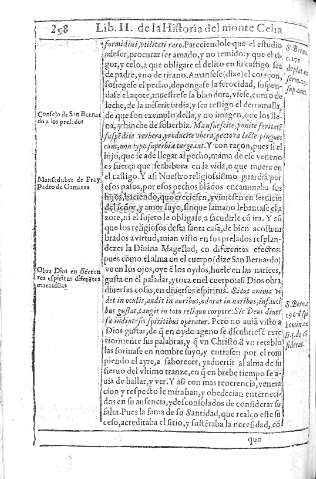 258 Lib. II. de la Historia del monte Celia
formidini, vtilitati raro. Pareciendole que el estudio
a de ser, procurar ser amado, y no temido; y que el
goz, y celo, a que obligare el delito en su castigo sea
de padre, y no de tirano. Amansese (dize) el coraçon,
sosieguese el pecho, depongase la ferocidad, suspen-
dase el açote, manifiestese la blandura,
leche, de la misericordia, y se el derramalla,
de que son exemplo de la, y no imagen, que los lla-
na, y hinche de soberbia. Mansuescite, ponite feritatē
suspēdite verbera, producite vbera, pectora lacte pinguescant,
non typo superbia turgeant. Y con razon, pues si el
hijo, que se à de llegar al pecho, mama de ele veneno
es fuerça que le falte en la vida, o que muera en
el castigo. Y asi Nuestro religiosissimo guardiā por
esos pasos, por esos pechos blādos encaminaba sus
hijos, haciendo, que creciesen, y viniesen en seruicio
del señor, y amor suyo, sin que la mano lebantase el a-
zote, ni el sujeto le obligase, a sacudirle cō ira. Y en
que los religiosos desta santa casa, de bien acostum-
brados a virtud, mian visto en sus prelados resplan-
decer la Diuina Magestad, co diferentes efectos:
pues como al alma en el cuerpo (dize San Bernardo)
ve en los ojos, oye ē los oydos, huele en las narices,
gusta en el paladar, y toca en el cuerpo: asi Dios obra
diuersas cosas, en diuersos espiritus. Sicut
det in oculis, audit in auribus, odorat in naribus, in fauci-
bus gustat, tangit in toto reliquo corpore. Sic Deus diuer-
sa in diuersis spiritibus operatur. Pero no auia visto a
Dios gustar, de quien do de ageno se discubriese exte-
riormente sus palabras, y q̄ vn Christo
las formase en nombre suyo, y entrasen por el rom-
piendo el ayre, a saborecer, y aduertir al alma de su
sieruo del vltimo tranze, en q̄ en brebe tiempo se a-
uia de hallar, y ver. Y asi con mas reuerencia, venera-
cion y respecto le miraban, y obedecian
dos en su ausencia, y desconsolados de considerar su
falta. Pues la fama de su Santidad, que realço este su-
ceso, acreditaba el sitio, y sustētaba la necesidad, cō
que
Consejo de San Bernar-
do a los prelados
Mansedūbre de Fray
Pedro de Gamarra
Obra Dios en diferen-
tes espiritus diferentes
marauillas.
S. Bernar.
S. Bernar.